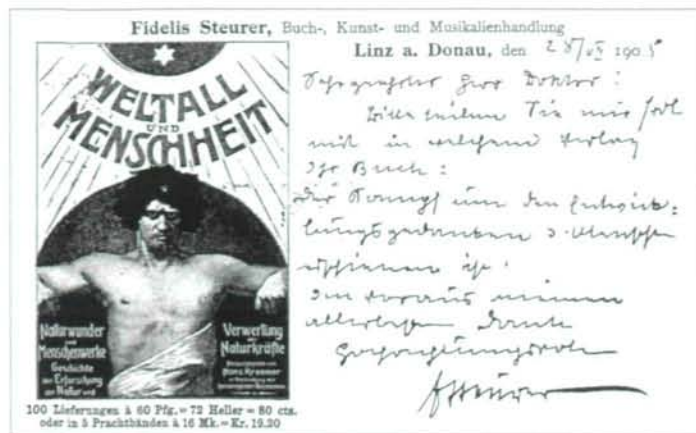 Fidelis Steurer, Buch-, Kunst- und Musikalienhandlung
Linz a. Donau, den 28/VII 1905
WELTALL
UND
MENSCHHEIT
Naturwunder
und
Menschenwerke
Geschichte
der Erforschung
der Natur und
Verwertung
der
Naturkräfte
Herausgegeben von
Hans Kraemer
100 Lieferungen à 60 Pfg. = 72 Heller = 80 cts.
oder in 5 Prachtbänden à 16 Mk. = Kr. 19.20
Sehr geehrter Herr Doktor!
Bitte teilen Sie mir
mit in welchem Verlag
Ihr Buch:
Der Kampf um den Entwick-
lungsgedanken
erschienen ist.
Im voraus meinen
Dank
Hochachtungsvoll
FSteurer